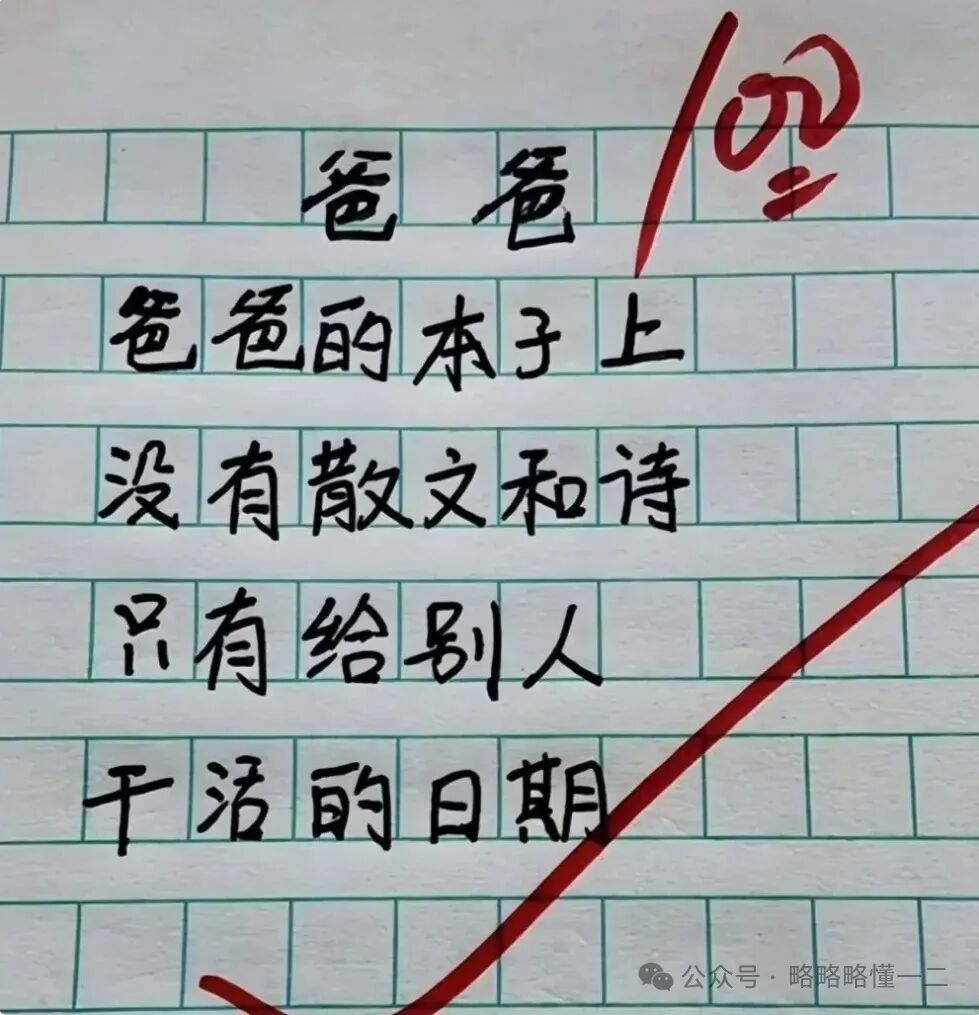 100
爸爸
爸爸的本子上
没有散文和诗
只有给别人
干活的日期
公众号·略略略懂一二